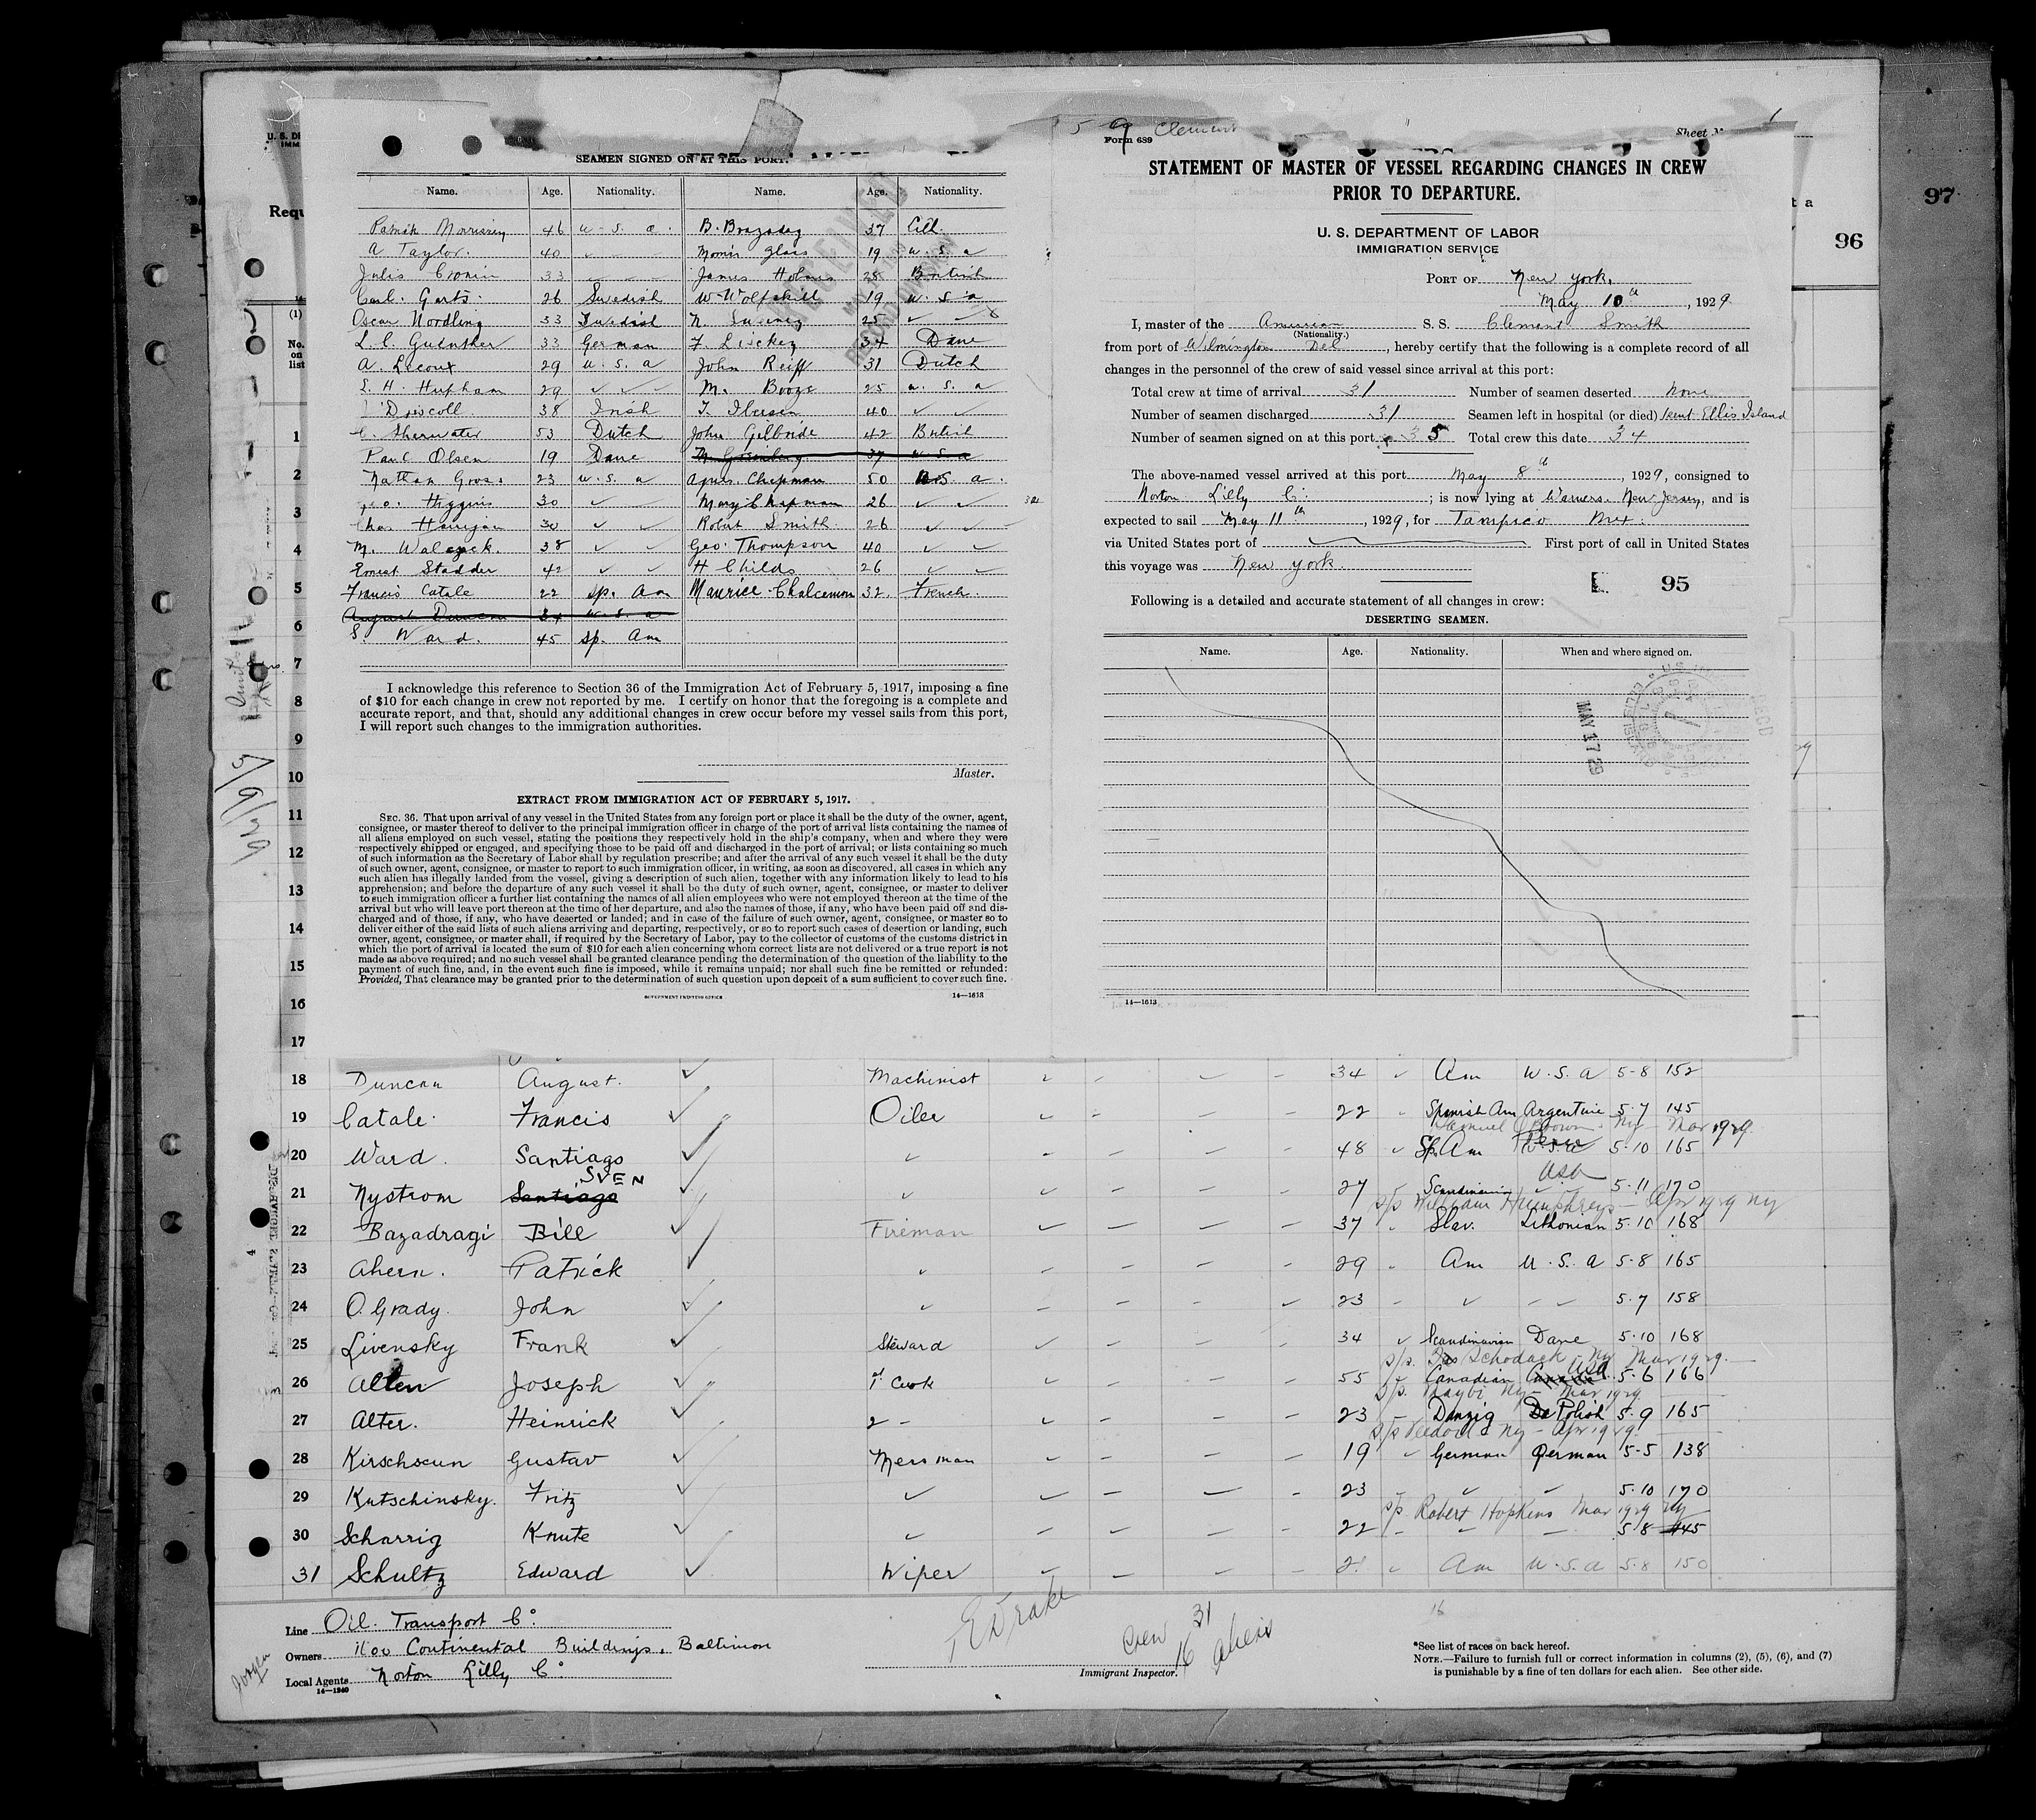 SEAMEN SIGNED ON AT THIS PORT.
Name. Age. Nationality. Name. Age. Nationality.
Patrick Morrissey 46 U. S. A. B. 37
A Taylor. 40 Morris Glass 19 U. S. A
Julis Cronin 33 James Holmes 28 British
Carl. Garts. 26 Swedish W 19 U. S. A
Oscar Nordling 33 Swedish N. 25
L. C. Guenther 33 German F. Lisckey 34 Dane
A. Lecout 29 U. S. A John Reiff 31 Dutch
E. H. Hupham 29 M. Booge 25 U. S. A
Driscoll 38 Irish T. Ibersen 40
C. Sherwater 53 Dutch John Gilbride 42
Paul Olsen 19 Dane 37 U. S. A
Nathan Gross 23 U. S. A Agnes. Chapman 50 U. S. A.
Geo. Higgins 30 Mary Chapman 26
Chas Harrigan 30 Robert Smith 26
M. Walczek. 38 Geo. Thompson 40
Ernest Stadder 42 H Childs 26
Francis Catale 22 Sp. Am Maurice Chalcemon 32. French.
August Duncan 34 U. S. A
S. Ward. 45 Sp. Am
I acknowledge this reference to Section 36 of the Immigration Act of February 5, 1917, imposing a fine
of $10 for each change in crew not reported by me. I certify on honor that the foregoing is a complete and
accurate report, and that, should any additional changes in crew occur before my vessel sails from this port,
I will report such changes to the immigration authorities.
Master.
EXTRACT FROM IMMIGRATION ACT OF FEBRUARY 5, 1917.
SEC. 36. That upon arrival of any vessel in the United States from any foreign port or place it shall be the duty of the owner, agent,
consignee, or master thereof to deliver to the principal immigration officer in charge of the port of arrival lists containing the names of
all aliens employed on such vessel, stating the positions they respectively hold in the ship's company, when and where they were
respectively shipped or engaged, and specifying those to be paid off and discharged in the port of arrival; or lists containing so much
of such information as the Secretary of Labor shall by regulation prescribe; and after the arrival of any such vessel it shall be the duty
of such owner, agent, consignee, or master to report to such immigration officer, in writing, as soon as discovered, all cases in which any
such alien has illegally landed from the vessel, giving a description of such alien, together with any information likely to lead to his
apprehension; and before the departure of any such vessel it shall be the duty of such owner, agent, consignee, or master to deliver
to such immigration officer a further list containing the names of all alien employees who were not employed thereon at the time of the
arrival but who will leave port thereon at the time of her departure, and also the names of those, if any, who have been paid off and dis-
charged and of those, if any, who have deserted or landed; and in case of the failure of such owner, agent, consignee, or master so to
deliver either of the said lists of such aliens arriving and departing, respectively, or so to report such cases of desertion or landing, such
owner, agent, consignee, or master shall, if required by the Secretary of Labor, pay to the collector of customs of the customs district in
which the port of arrival is located the sum of $10 for each alien concerning whom correct lists are not delivered or a true report is not
made as above required; and no such vessel shall be granted clearance pending the determination of the question of the liability to the
payment of such fine, and, in the event such fine is imposed, while it remains unpaid; nor shall such fine be remitted or refunded:
Provided, That clearance may be granted prior to the determination of such question upon deposit of a sum sufficient to cover such fine.
GOVERNMENT PRINTING OFFICE 14—1613
5 9 Clement
Form 689
Sheet
STATEMENT OF MASTER OF VESSEL REGARDING CHANGES IN CREW
PRIOR TO DEPARTURE.
U. S. DEPARTMENT OF LABOR
IMMIGRATION SERVICE
PORT OF New York,
May 10th, 1929
I, master of the American S. S. Clement Smith
(Nationality.)
from port of Wilmington Del, hereby certify that the following is a complete record of all
changes in the personnel of the crew of said vessel since arrival at this port:
Total crew at time of arrival 31 Number of seamen deserted None
Number of seamen discharged 31 Seamen left in hospital (or died) 1 sent Ellis Island
Number of seamen signed on at this port 35 Total crew this date 34
The above-named vessel arrived at this port May 8th, 1929, consigned to
Norton Lilly Co.; is now lying at Warners. New Jersey, and is
expected to sail May 11th, 1929, for Tampico Mex.
via United States port of First port of call in United States
this voyage was New York.
95
Following is a detailed and accurate statement of all changes in crew:
DESERTING SEAMEN.
Name. Age. Nationality. When and where signed on.
MAY 17 29
14—1613
97
96
5/9/29
1
2
3
4
5
6
7
8
9
10
11
12
13
14
15
16
17
18 Duncan August. Machinist 34 Am U. S. A 5-8 152
19 Catale. Francis Oiler 22 Spanish Am Argentine 5-7 145
Samuel Q Brown - NY - Mar 1929
20 Ward. Santiago 48 Sp. Am Peru U. S. A 5-10 165
SVEN USA
21 Nystrom Santiago 27 Scandinavian 5-11 170
S/S William Humphreys - Apr 1929 NY
22 Bazadragi Bill Fireman 37 Slav. Lithonian 5-10 168
23 Ahern. Patrick 29 Am U. S. A 5-8 165
24 O. Grady. John 23 5-7 158
25 Livensky Frank Steward 34 Scandinavian Dane 5-10 168
S/S. Schodack - NY Mar 1929.
26 Allen Joseph 1st Cook 55 Canadian Canada USA 5-6 166
S/S. NY - Mar 1929
27 Alter. Heinrick 2 - 23 Danzig Polish 5-9 165
S/S NY - Apr 1929.
28 Kirschseun Gustav Messman 19 German German 5-5 138
29 Kutschinsky. Fritz 23 5-10 170
S/S. Robert Hopkins Mar 1929 NY
30 Scharrig Knute 22 5-8 145
31 Schultz Edward Wiper Am U. S. A 5-8 150
Line Oil. Transport Co.
Owners 1600 Continental Buildings, Baltimore
Local Agents Norton Lilly Co.
14—1240
E Drake
Crew 31
16 aliens
Immigrant Inspector.
*See list of races on back hereof.
NOTE.—Failure to furnish full or correct information in columns (2), (5), (6), and (7)
is punishable by a fine of ten dollars for each alien. See other side.